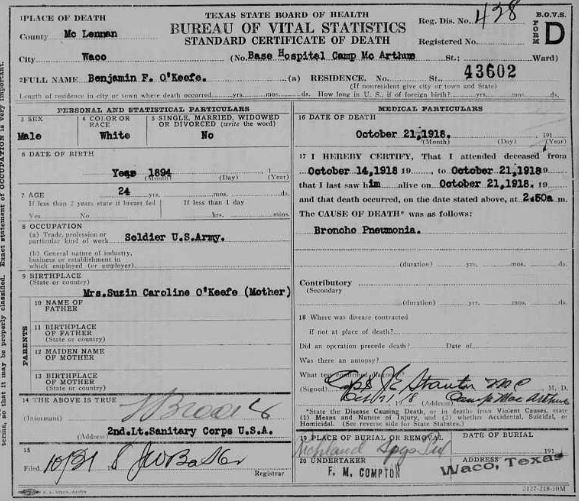 1PLACE OF DEATH
TEXAS STATE BOARD OF HEALTH
BUREAU OF VITAL STATISTICS
STANDARD CERTIFICATE OF DEATH
Reg. Dis. No. 438
B.O.V.S.
FORM D
County Mc Lennan
Registered No.
City Waco (No. Base Hospital Camp Mc Arthur St.; Ward)
43602
2FULL NAME Benjamin F. O'Keefe. (a) RESIDENCE, No. St.,
(If nonresident give city or town and State)
Length of residence in city or town where death occurred yrs. mos. ds. How long in U. S., if of foreign birth? yrs. mos. ds.
PERSONAL AND STATISTICAL PARTICULARS
3 SEX
Male
4 COLOR OR RACE
White
5 SINGLE, MARRIED, WIDOWED OR DIVORCED (write the word)
No
6 DATE OF BIRTH
Year 1894
(Month) (Day) (Year)
7 AGE
24 yrs. mos. ds.
If less than 2 years state if breast fed
If less than 1 day
Yes No hrs. mins.
8 OCCUPATION
(a) Trade, profession or particular kind of work Soldier U.S.Army.
(b) General nature of industry, business or establishment in which employed (or employer).
9 BIRTHPLACE
(State or country)
Mrs.Suzin Caroline O'Keefe (Mother)
PARENTS
10 NAME OF FATHER
11 BIRTHPLACE OF FATHER
(State or country)
12 MAIDEN NAME OF MOTHER
13 BIRTHPLACE OF MOTHER
(State or country)
14 THE ABOVE IS TRUE
(Informant)
(Address) 2nd.Lt.Sanitary Corps U.S.A.
15
Filed, 10/21
Registrar
MEDICAL PARTICULARS
16 DATE OF DEATH
October 21,1918. 191
(Month) (Day) (Year)
17 I HEREBY CERTIFY, That I attended deceased from
October 14,1918 19 , to October 21,1918
that I last saw him alive on October 21,1918. 19
and that death occurred, on the date stated above, at 2:50a m.
The CAUSE OF DEATH* was as follows:
Broncho Pneumonia.
(duration) yrs. mos. ds.
Contributory
(Secondary)
(duration) yrs. mos. ds.
18 Where was disease contracted
if not at place of death?
Did an operation precede death? Date of
Was there an autopsy?
What test confirmed diagnosis?
(Signed) Capt J E Stanton M C M. D.
Oct 21, 18 (Address) Camp Mac Arthur
*State the Disease Causing Death, or in deaths from Violent Causes, state (1) Means and Nature of Injury, and (2) whether Accidental, Suicidal, or Homicidal. (See reverse side for State Statistics.)
19 PLACE OF BURIAL OR REMOVAL
Richland Spgs
DATE OF BURIAL
191
20 UNDERTAKER
F. M. COMPTON
ADDRESS
Waco, Texas
2127-218-10M